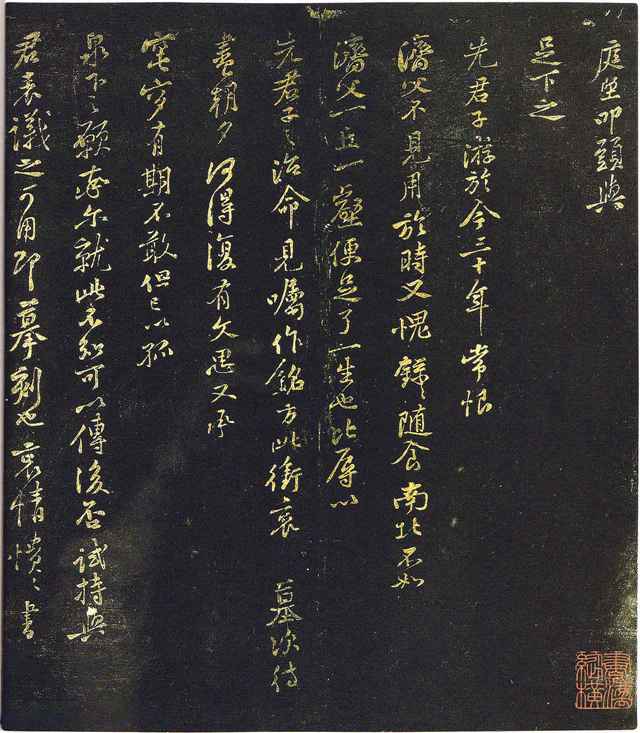 庭堅叩頭與
足下之
先君子游於今三十年常恨
濟父不見用於時又愧錄錄隨食南北不如
濟父一丘一壑便足了一生也比辱以
先君子之治命見囑作銘方此銜哀墓次待
盡朝夕何得復有文思又承
窀穸有期不敢但已以孤
泉下之願志尔就此不知可以傳後否試持與
君素議之可用即摹刻也哀情憒憒書